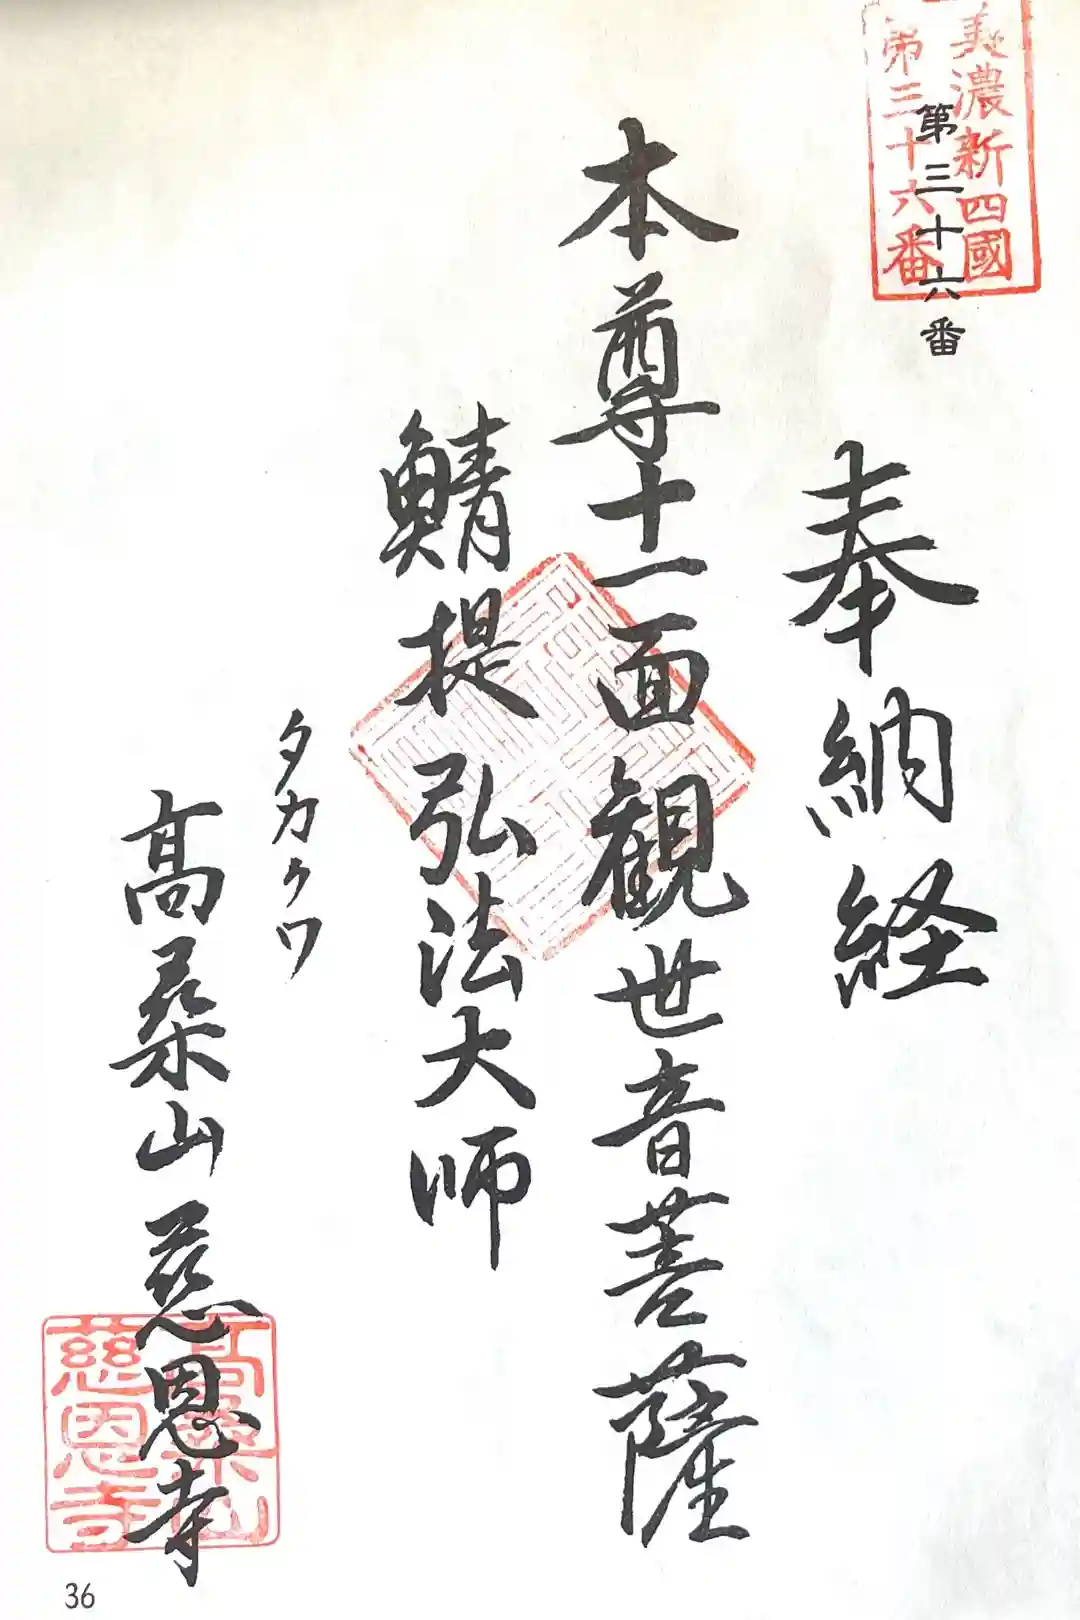 美濃新四國
第三十六番
第三十六番
奉納経
本尊十一面観世音菩薩
鯖提弘法大師
タカクワ
髙桒山慈恩寺
髙桒山
慈恩寺
36